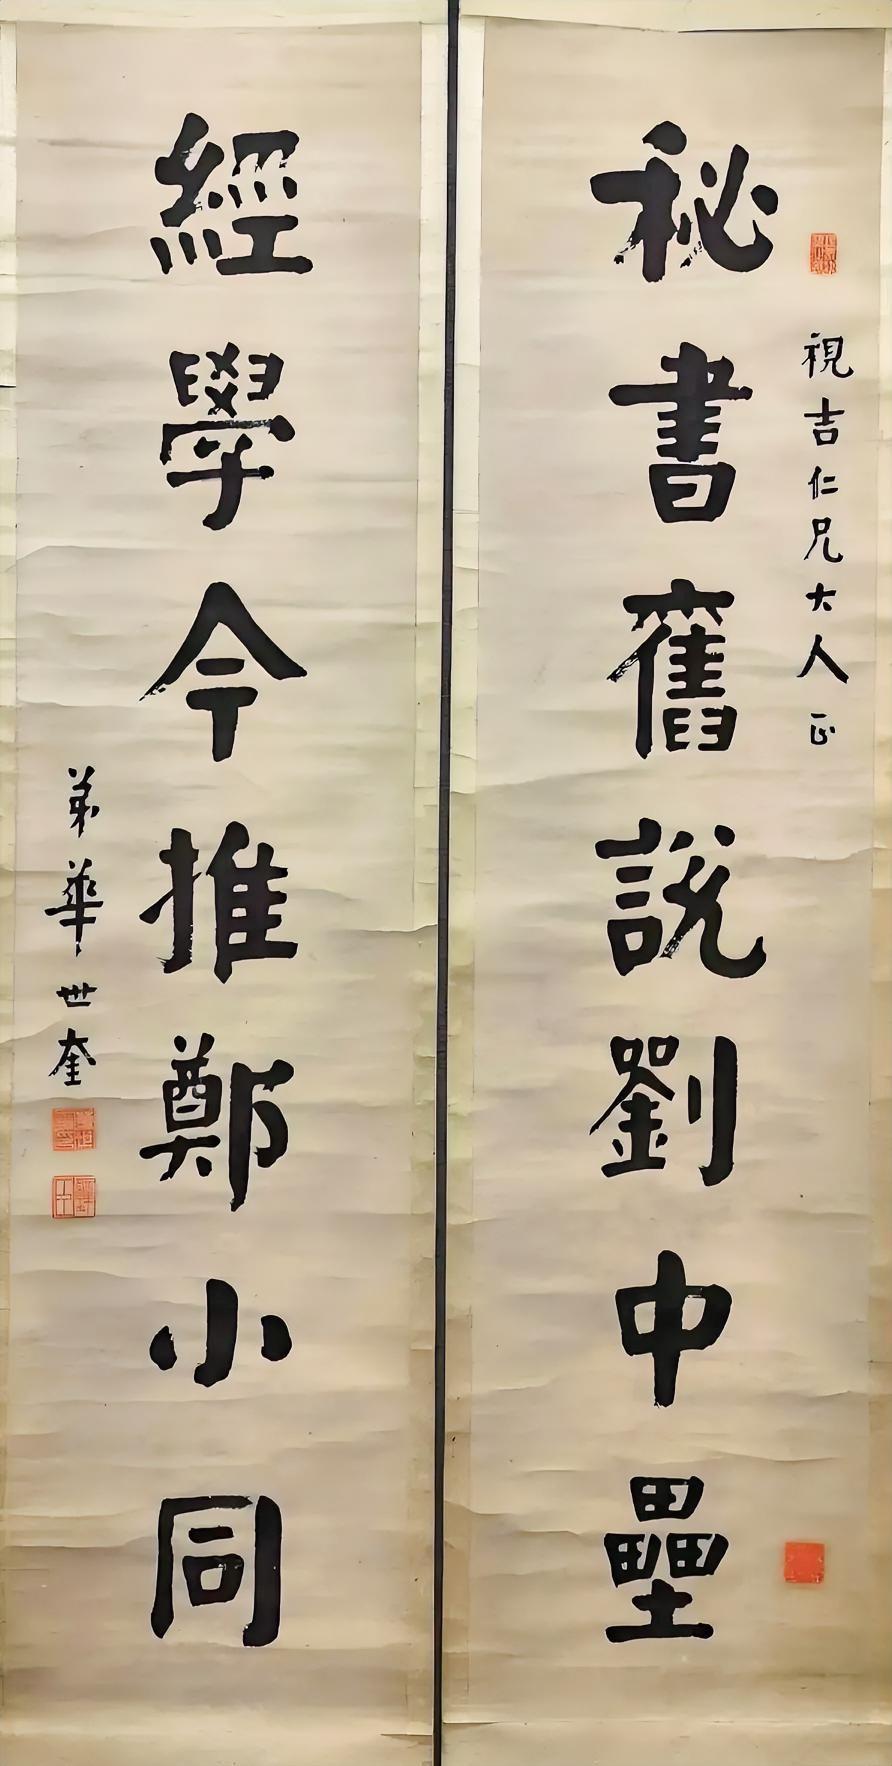 視吉仁兄大人正
秘書舊說劉中壘
經學今推鄭小同
弟華世奎